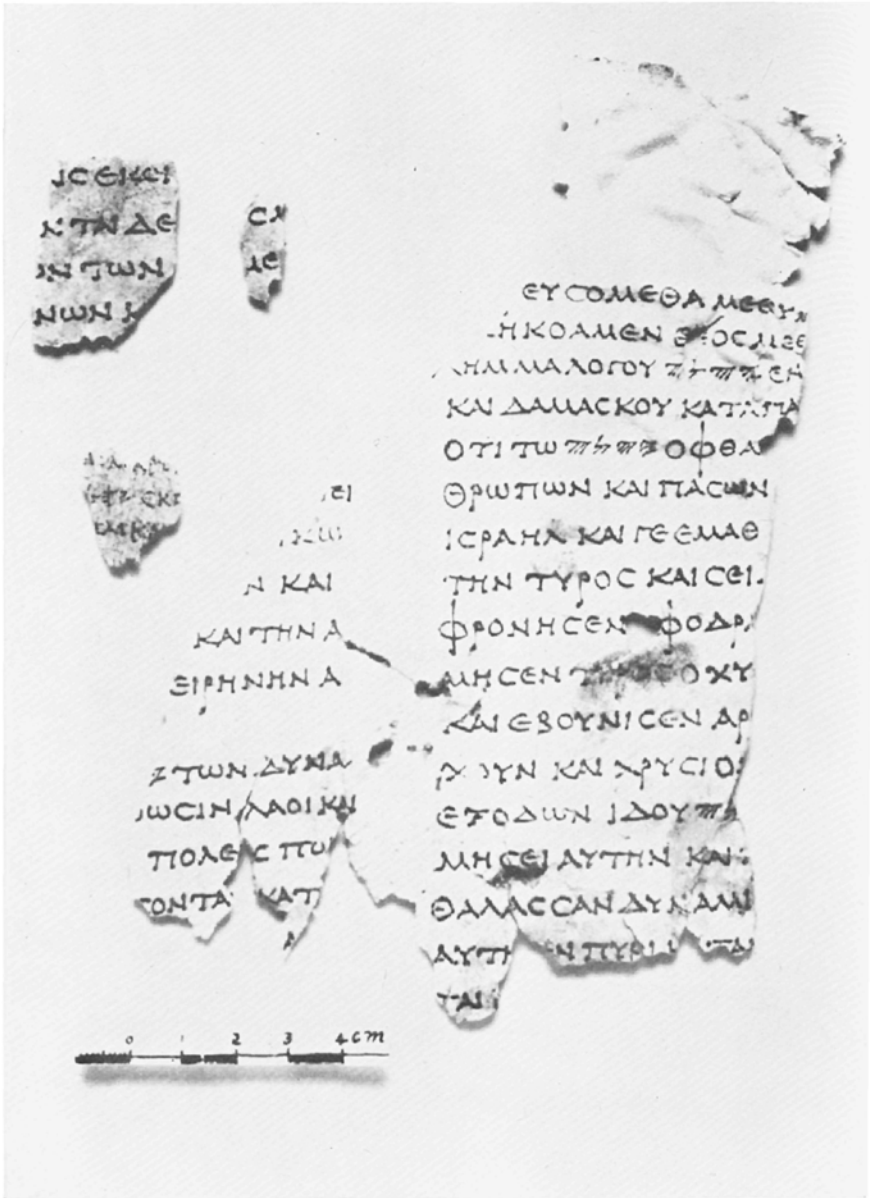 ΙС ΕΚΕΙ
Ν ΤΗ ΔΕ
ΩΝ ΤΩΝ
ΝΩΝ
СΛ
ΔΕ
ΕΙ
ΚΩ
Ν ΚΑΙ
ΚΑΙ ΤΗΝ Α
ΕΙΡΗΝΗΝ Α
ΤΩΝ ΔΥΝΑ
ΩСΙΝ ΛΑΟΙ ΚΑΙ
ΠΟΛΕΙС ΠΟΛ
ΤΟΝΤΑΙ ΚΑΤ
Α
ΕΥСΟΜΕΘΑ ΜΕΘ ΥΜ
ΗΚΟΑΜΕΝ
ΛΗΜΜΑ ΛΟΓΟΥ 𐤉𐤄𐤅𐤄 ΕΝ
ΚΑΙ ΔΑΜΑСΚΟΥ ΚΑΤΑΠΑ
ΟΤΙ ΤΩ 𐤉𐤄𐤅𐤄 ΟΦΘΑ
ΘΡΩΠΩΝ ΚΑΙ ΠΑСΩΝ
ΙСΡΑΗΛ ΚΑΙ ΓΕ ΕΜΑΘ
ΤΗΝ ΤΥΡΟС ΚΑΙ СΕΙ
ΦΡΟΝΗСΕΝ СΦΟΔΡΑ
ΜΗСΕΝ ΤΥΡΟС ΟΧΥ
ΚΑΙ ΕΒΟΥΝΙСΕΝ ΑΡ
ΧΟΥΝ ΚΑΙ ΧΡΥСΙΟ
ΕΞΟΔΩΝ ΙΔΟΥ 𐤉𐤄
ΜΗСΕΙ ΑΥΤΗΝ ΚΑΙ
ΘΑΛΑССΑΝ ΔΥΝΑΜΙ
ΑΥΤΗ ΕΝ ΠΥΡΙ ΤΑΙ
ΤΑΙ